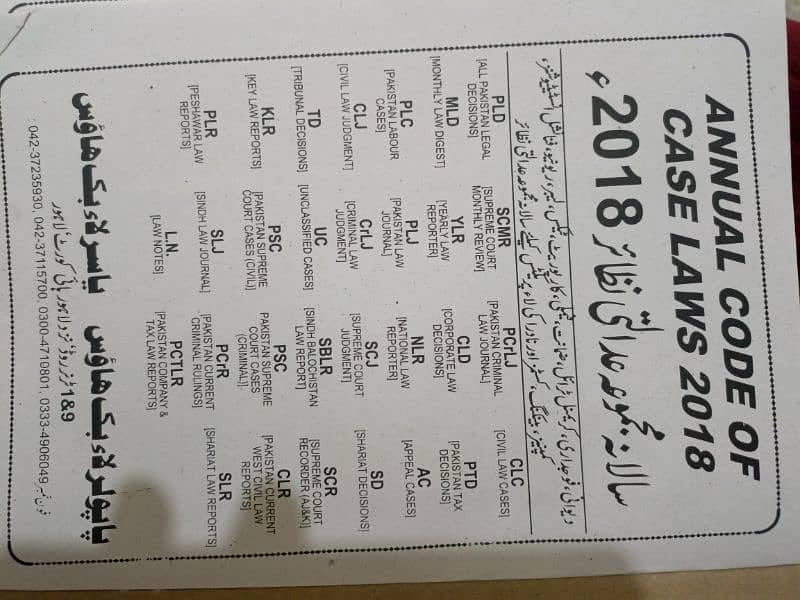 ANNUAL CODE OF
CASE LAWS 2018
سالانہ مجموعہ عدالتی نظائر 2018ء
دیوانی، فوجداری، کریمنل ٹرائل، ضمانت، فیملی، کارپوریٹ، ٹیکس، لیبر، ریونیو، فنانشل انسٹیٹیوشنز،
کمپنیز، بینکنگ، کسٹمز اور نادرا کی لاء پریکٹس کیلئے سالانہ مجموعہ عدالتی نظائر
PLD
[ALL PAKISTAN LEGAL
DECISIONS]
SCMR
[SUPREME COURT
MONTHLY REVIEW]
PCrLJ
[PAKISTAN CRIMINAL
LAW JOURNAL]
CLC
[CIVIL LAW CASES]
MLD
[MONTHLY LAW DIGEST]
YLR
[YEARLY LAW
REPORTER]
CLD
[CORPORATE LAW
DECISIONS]
PTD
[PAKISTAN TAX
DECISIONS]
PLC
[PAKISTAN LABOUR
CASES]
PLJ
[PAKISTAN LAW
JOURNAL]
NLR
[NATIONAL LAW
REPORTER]
AC
[APPEAL CASES]
CLJ
[CIVIL LAW JUDGMENT]
CrLJ
[CRIMINAL LAW
JUDGMENT]
SCJ
[SUPREME COURT
JUDGMENT]
SD
[SHARIAT DECISIONS]
TD
[TRIBUNAL DECISIONS]
UC
[UNCLASSIFIED CASES]
SBLR
[SINDH BALOCHISTAN
LAW REPORT]
SCR
[SUPREME COURT
RECORDER (AJ&K)]
KLR
[KEY LAW REPORTS]
PSC
[PAKISTAN SUPREME
COURT CASES (CIVIL)]
PSC
PAKISTAN SUPREME
COURT CASES
(CRIMINAL)]
CLR
[PAKISTAN CURRENT
WEST CIVIL LAW
REPORTS]
PLR
[PESHAWAR LAW
REPORTS]
SLJ
[SINDH LAW JOURNAL]
PCrR
[PAKISTAN CURRENT
CRIMINAL RULINGS]
SLR
[SHARIAT LAW REPORTS]
L.N.
[LAW NOTES]
PCTLR
[PAKISTAN COMPANY &
TAX LAW REPORTS]
پاپولر لاء بک ہاؤس یاسر لاء بک ہاؤس
1&9 ٹرنر روڈ نزد لاہور ہائی کورٹ، لاہور
فون نمبر: 042-37235930, 042-37115700, 0300-4710801, 0333-4906049